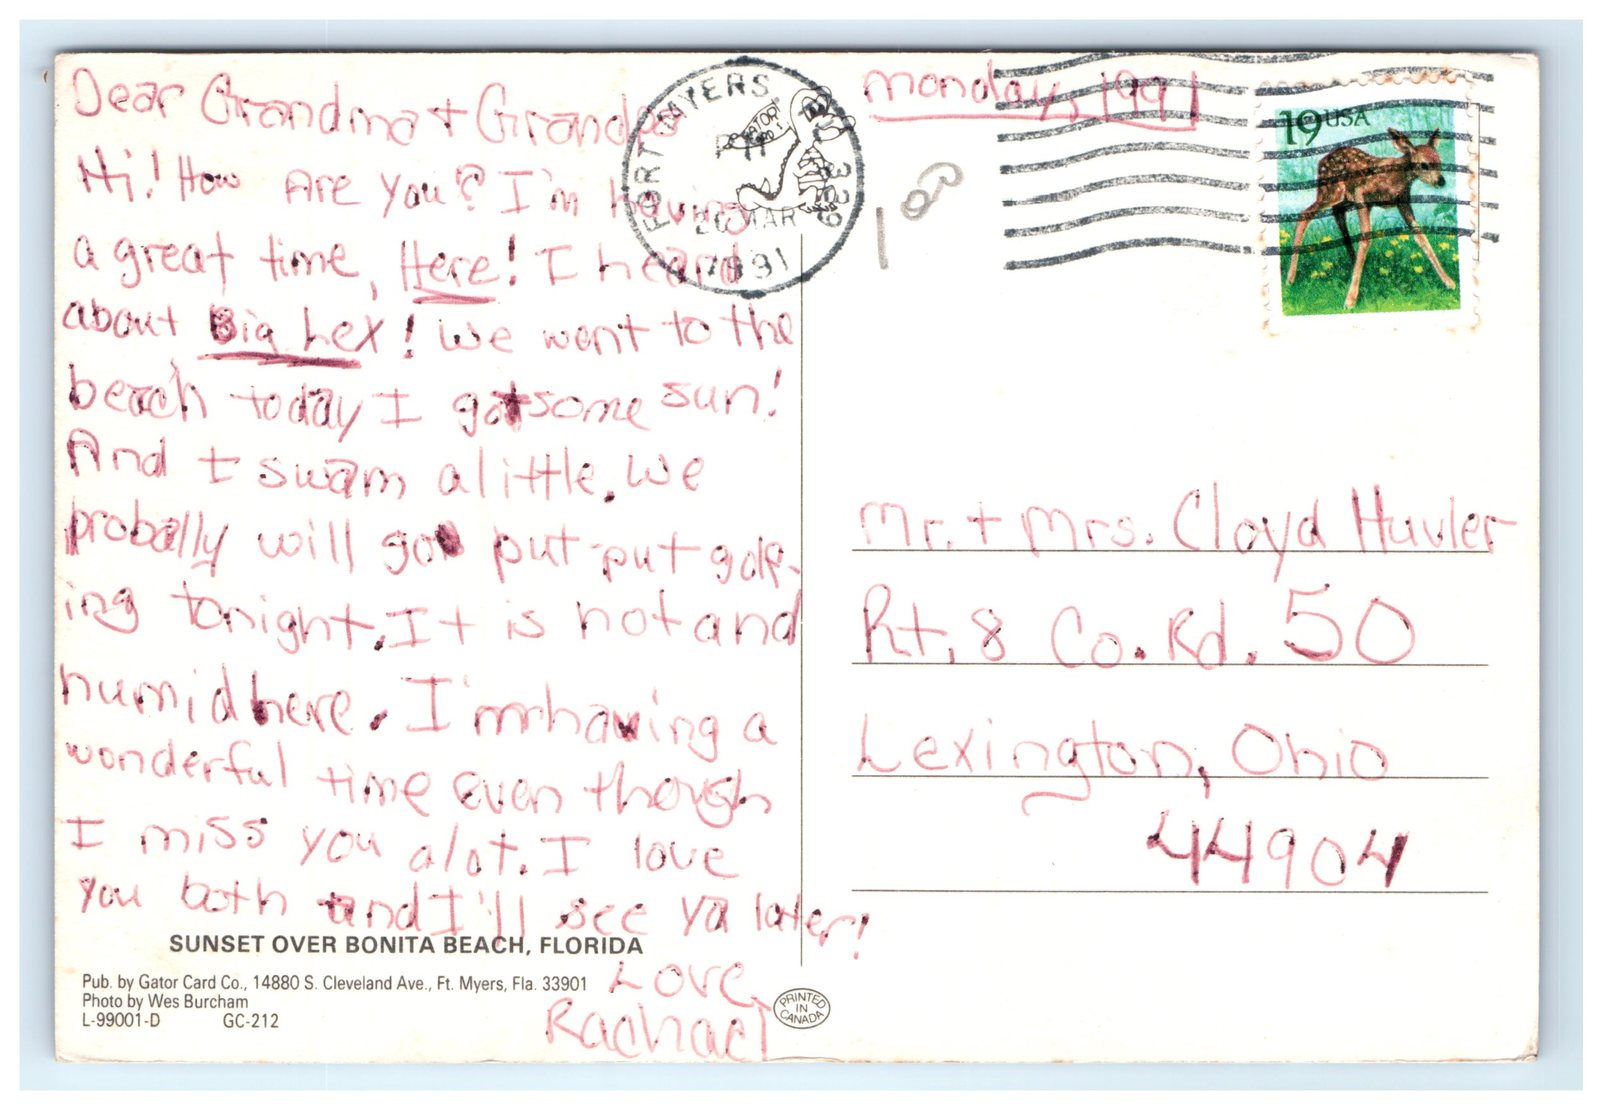 Dear Grandma + Grandpa
Hi! How Are You? I'm having
a great time, Here! I heard
about Big Lex! We went to the
beach today I got some sun!
And I swam a little. We
probally will go put-put golf-
ing tonight. It is hot and
humid here. I'm having a
wonderful time even though
I miss you alot. I love
you both and I'll see ya later!
Love,
Rachael
SUNSET OVER BONITA BEACH, FLORIDA
Pub. by Gator Card Co., 14880 S. Cleveland Ave., Ft. Myers, Fla. 33901
Photo by Wes Burcham
L-99001-D GC-212
PRINTED
IN
CANADA
FORT MYERS 339
PM
MAR
1991
monday, 1991
100
19 USA
Mr. + Mrs. Cloyd Huvler
Rt. 8 Co. Rd. 50
Lexington, Ohio
44904